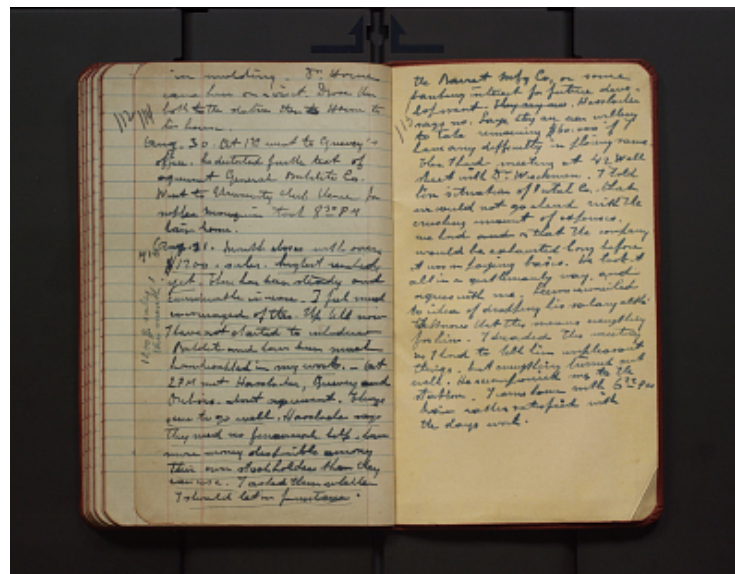 in molding. Dr. Horne
came here on a visit. Drove them
both to the station then to Horne to
his house.
112 111
Aug. 30. At 1 PM went to Queeny's
office. He dictated further text of
agreement General Bakelite Co.
Went to University Club dinner for
Took 8 30 PM
train home.
Aug. 31. Month closes with over
$1200. sales. Highest reached
yet. There has been steady and
considerable increase. I feel much
encouraged of this. Up till now
I have not started to introduce
Bakelite and have been much
handicapped in my work. - At
2 PM met Hasslacher, Queeny and
about agreement. Things
seem to go well. Hasslacher says
they need no financial help, have
more money disponible among
their own stockholders than they
can use. I asked them whether
I should let in
113
the Barret Mfg Co, or some
banking interest for future deve-
lopment. They say no. Hasslacher
says no. Says they are even willing
to take remaining $60.000 if I
have any difficulty in placing same.
Then I had meeting at 42 Wall
Street with Dr. Wackman. I told
him situation of Co. That
we could not go ahead with the
crushing amount of expenses
we had and that the company
would be exhausted long before
it was on paying basis. He took it
all in a gentlemanly way, and
agrees with me. Seems reconciled
to idea of dropping his salary altho
I know that this means everything
for him. I dreaded this meeting
as I had to tell him unpleasant
things, but everything turned out
well. He accompanied me to the
station. I came home with 6 PM
train rather satisfied with
the days work.